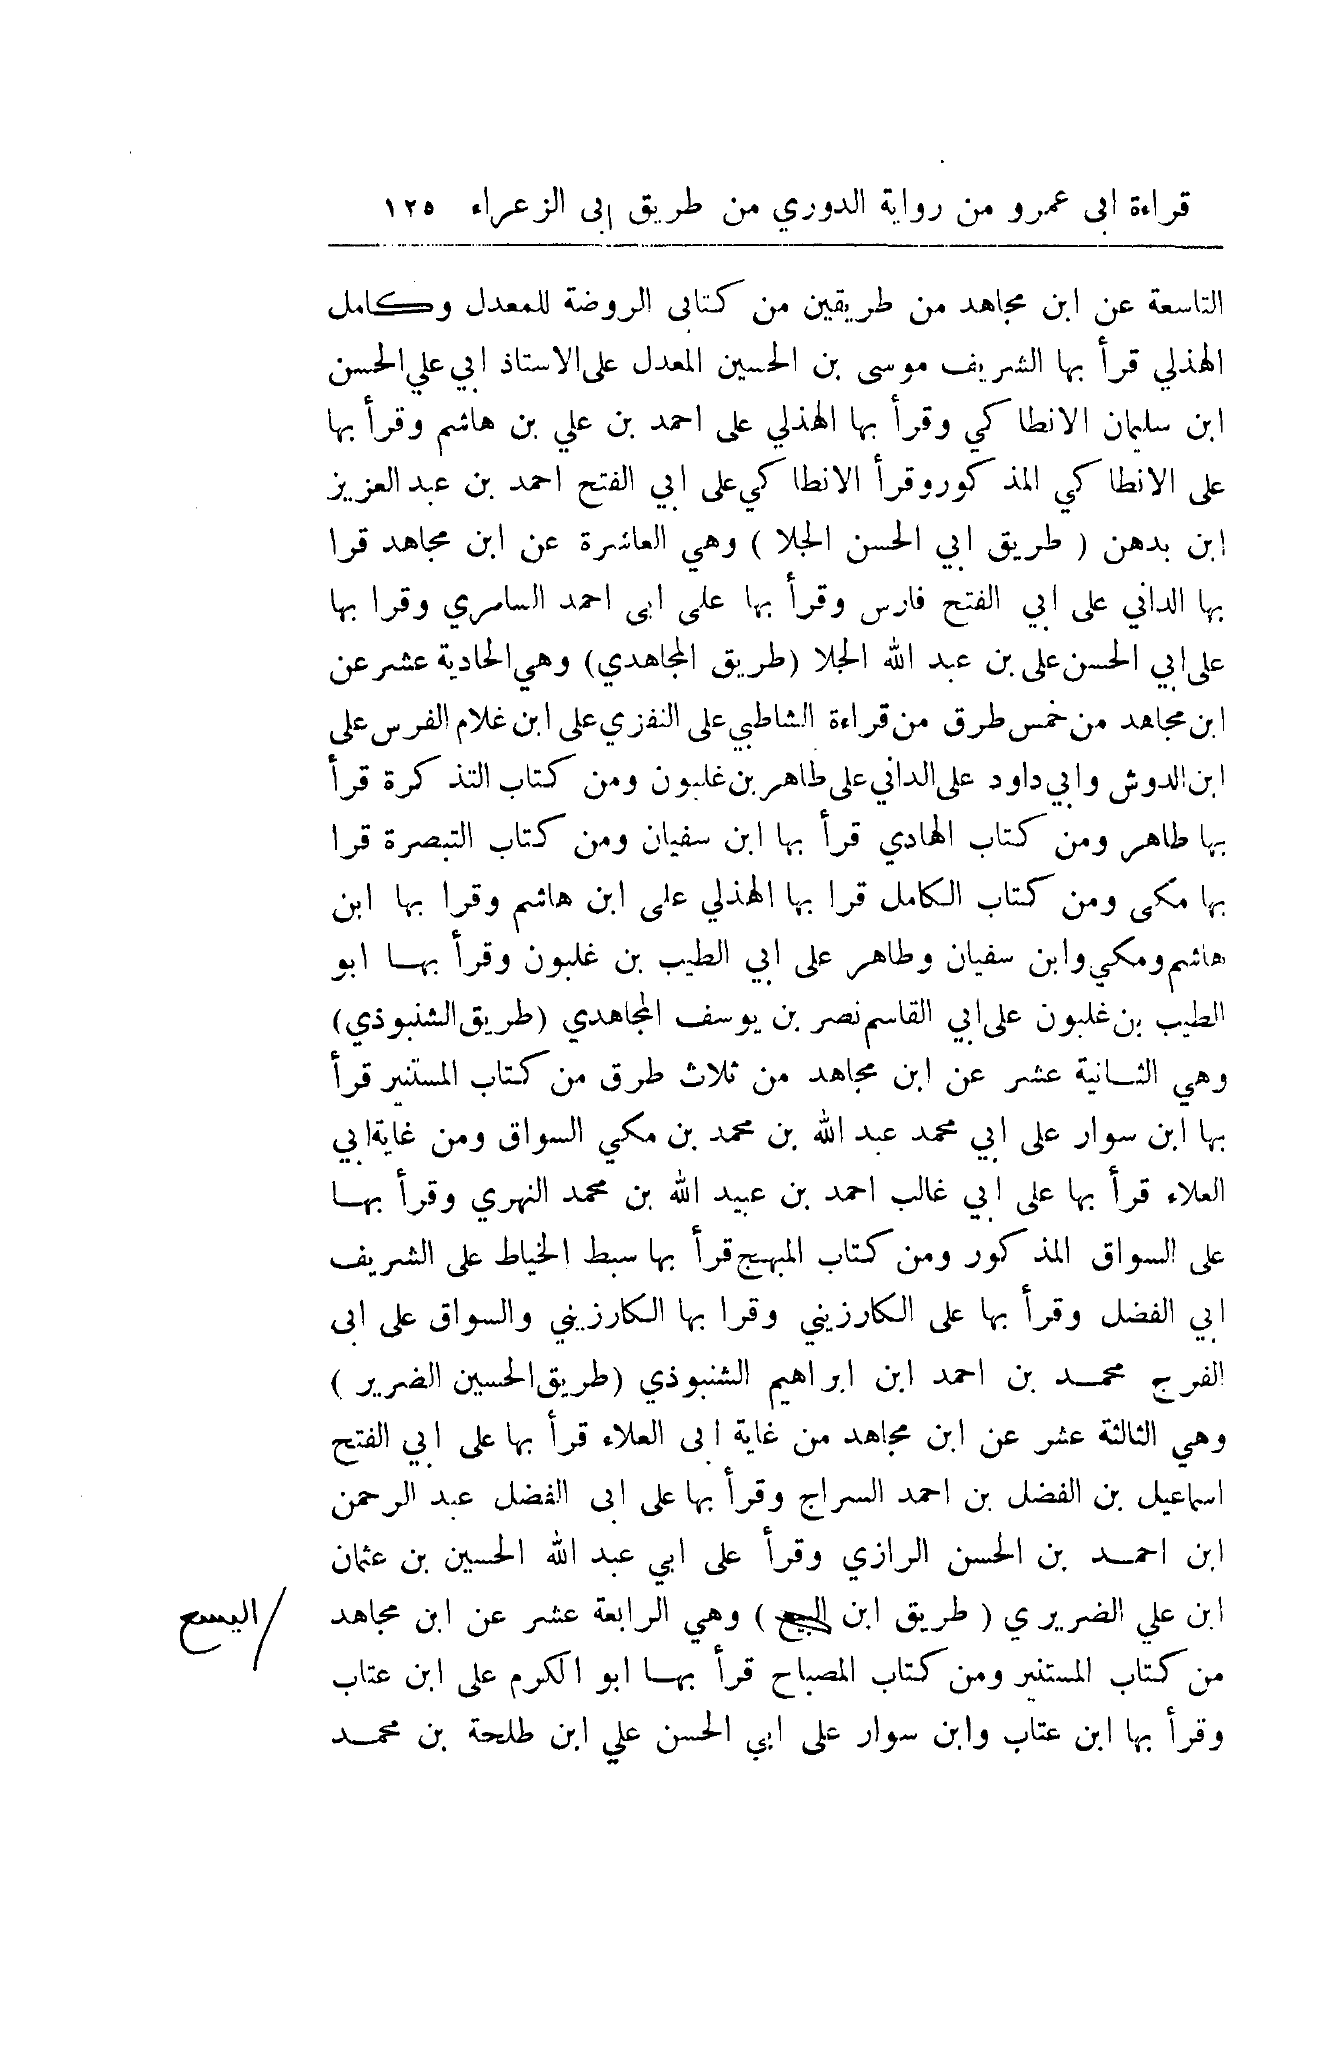 قراءة ابى عمرو من رواية الدوري من طريق ابى الزعراء ١٢٥
التاسعة عن ابن مجاهد من طريقين من كتابى الروضة للمعدل وكامل
الهذلي قرأ بها الشريف موسى بن الحسين المعدل على الاستاذ ابي علي الحسن
ابن سليمان الانطاكي وقرأ بها الهذلي على احمد بن علي بن هاشم وقرأ بها
على الانطاكي المذكور وقرأ الانطاكي على ابي الفتح احمد بن عبد العزيز
ابن بدهن ( طريق ابي الحسن الجلا ) وهي العاشرة عن ابن مجاهد قرا
بها الداني على ابي الفتح فارس وقرأ بها على ابى احمد السامري وقرا بها
على ابي الحسن على بن عبد الله الجلا (طريق المجاهدي) وهي الحادية عشر عن
ابن مجاهد من خمس طرق من قراءة الشاطبي على النفزي على ابن غلام الفرس على
ابن الدوش وابي داود على الداني على طاهر بن غلبون ومن كتاب التذكرة قرأ
بها طاهر ومن كتاب الهادي قرأ بها ابن سفيان ومن كتاب التبصرة قرا
بها مكى ومن كتاب الكامل قرا بها الهذلي على ابن هاشم وقرا بها ابن
هاشم ومكي وابن سفيان وطاهر على ابي الطيب بن غلبون وقرأ بهـا ابو
الطيب بن غلبون على ابي القاسم نصر بن يوسف المجاهدي (طريق الشنبوذي)
وهي الثـانية عشر عن ابن مجاهد من ثلاث طرق من كتاب المستنير قرأ
بها ابن سوار على ابي محمد عبد الله بن محمد بن مكي السواق ومن غاية ابي
العلاء قرأ بها على ابي غالب احمد بن عبيد الله بن محمد النهري وقرأ بهـا
على السواق المذكور ومن كتاب المبهج قرأ بها سبط الخياط على الشريف
ابي الفضل وقرأ بها على الكارزيني وقرا بها الكارزيني والسواق على ابى
الفرج محمـد بن احمد ابن ابراهيم الشنبوذي (طريق الحسين الضرير )
وهي الثالثة عشر عن ابن مجاهد من غاية ابى العلاء قرأ بها على ابي الفتح
اسماعيل بن الفضل بن احمد السراج وقرأ بها على ابى الفضل عبد الرحمن
ابن احمـد بن الحسن الرازي وقرأ على ابي عبد الله الحسين بن عثمان
ابن علي الضريري ( طريق ابن ) وهي الرابعة عشر عن ابن مجاهد
/ اليسع
من كتاب المستنير ومن كتاب المصباح قرأ بهـا ابو الكرم على ابن عتاب
وقرأ بها ابن عتاب وابن سوار على ابي الحسن علي ابن طلحة بن محمـد